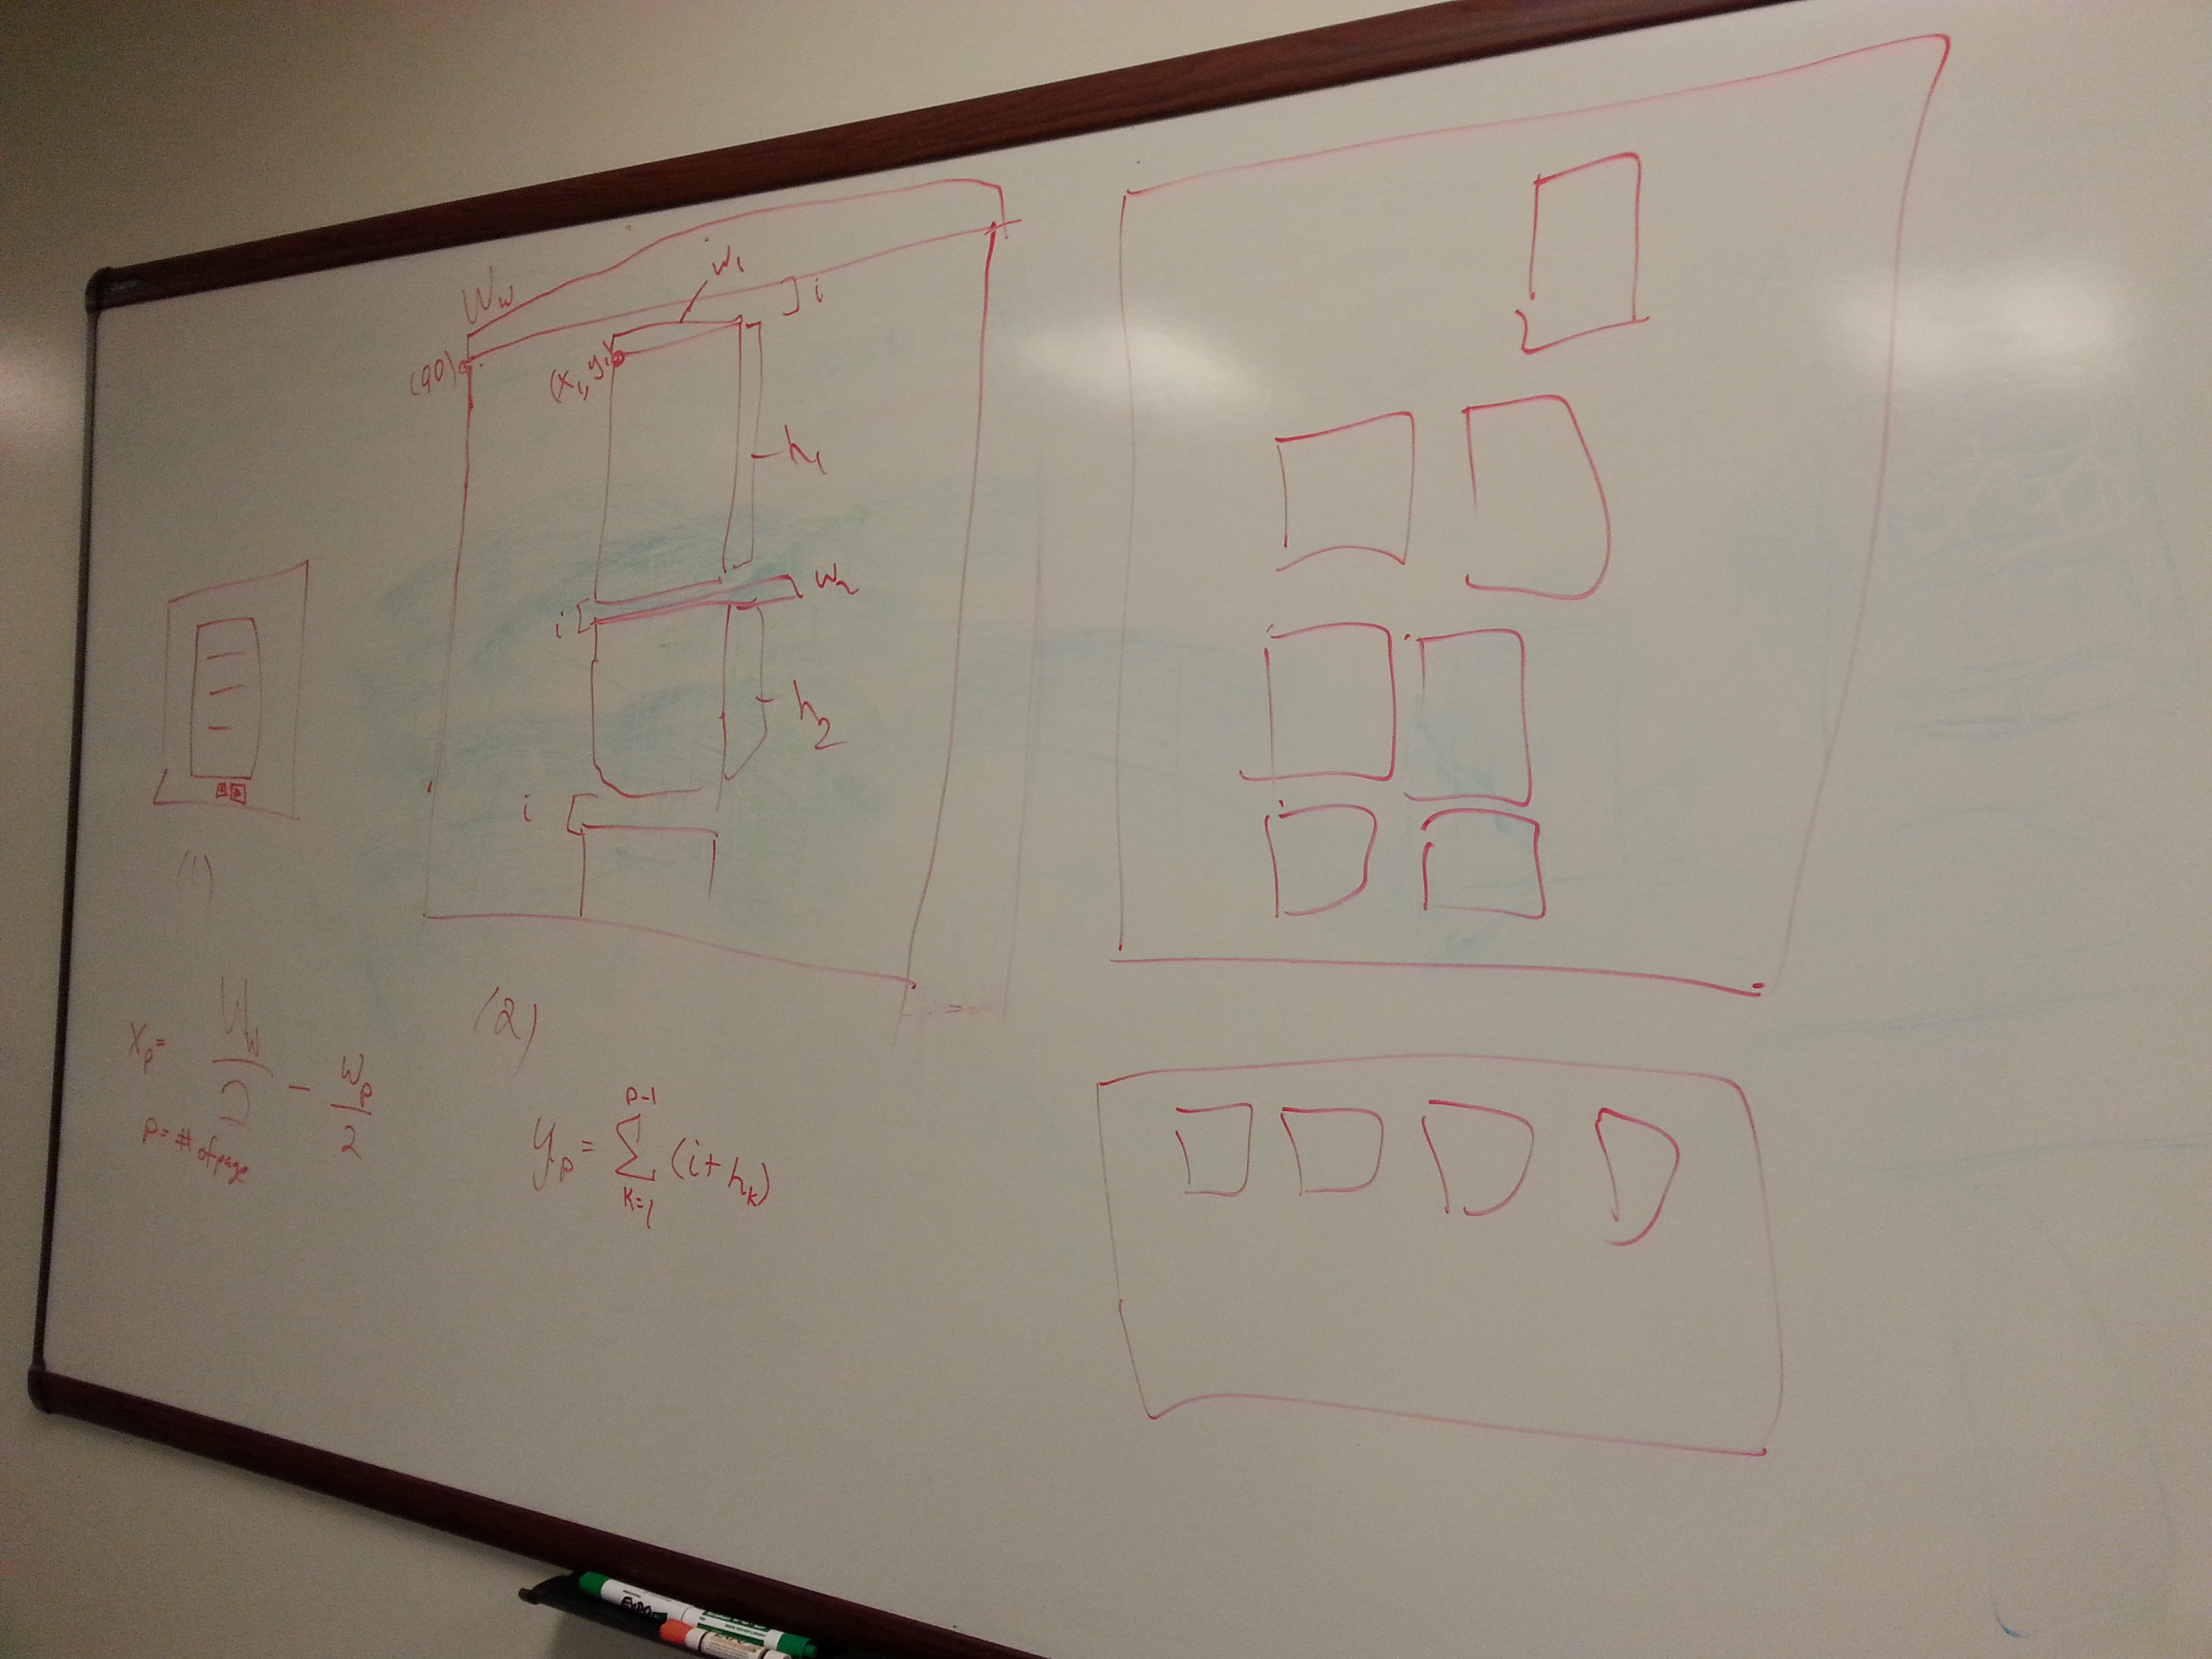 W_w
w_1
i
(0,0)
(x_1, y_1)
h_1
w_2
i
h_2
i
(1)
(2)
x_p = W_w/2 - w_p/2
p = # of page
y_p = Σ_{k=1}^{p-1} (i + h_k)
EXPO